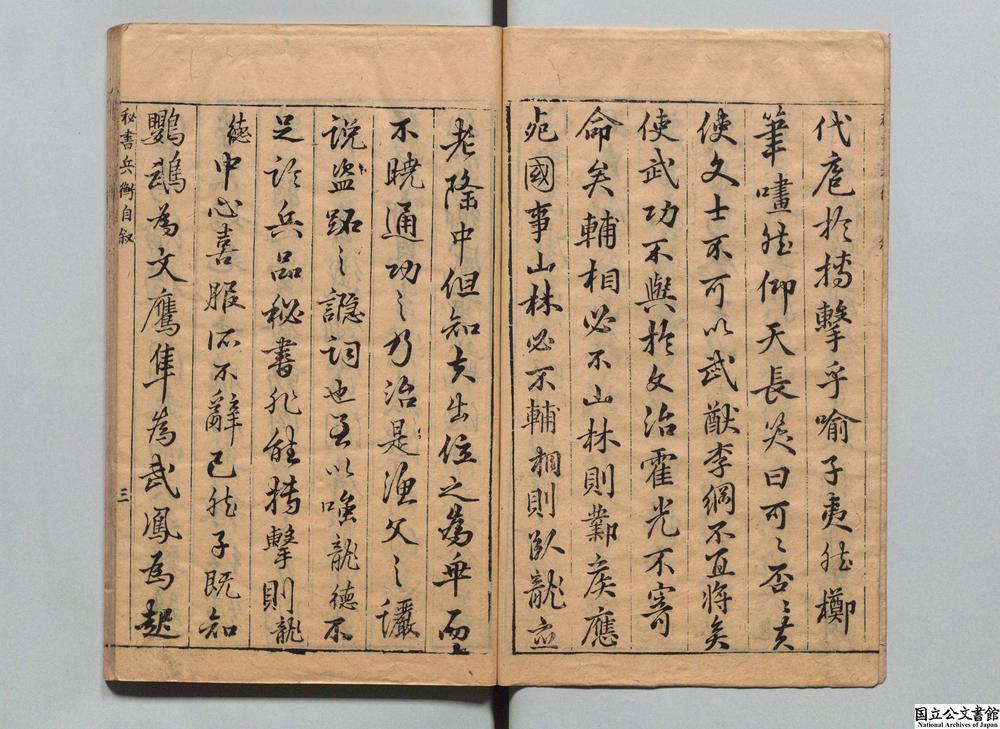 代庖於搏擊乎喻子夷然擲
筆嘯然仰天長笑曰可可否否其
使文士不可以武猷李綱不宜將矣
使武功不與於文治霍光不寄
命矣輔相必不山林則酇侯應
宛國事山林必不輔相則臥龍應
老隆中但知夫出位之為毋而
不曉通功之乃治是漁父之
說盜跖之讔詞也至以嗤龍德不
足於兵品秘書非能搏擊則龍
德中心喜服所不辭已然子既知
鸚鵡為文鷹隼為武鳳為起
秘書兵衡自敘
三
国立公文書館
National Archives of Japan